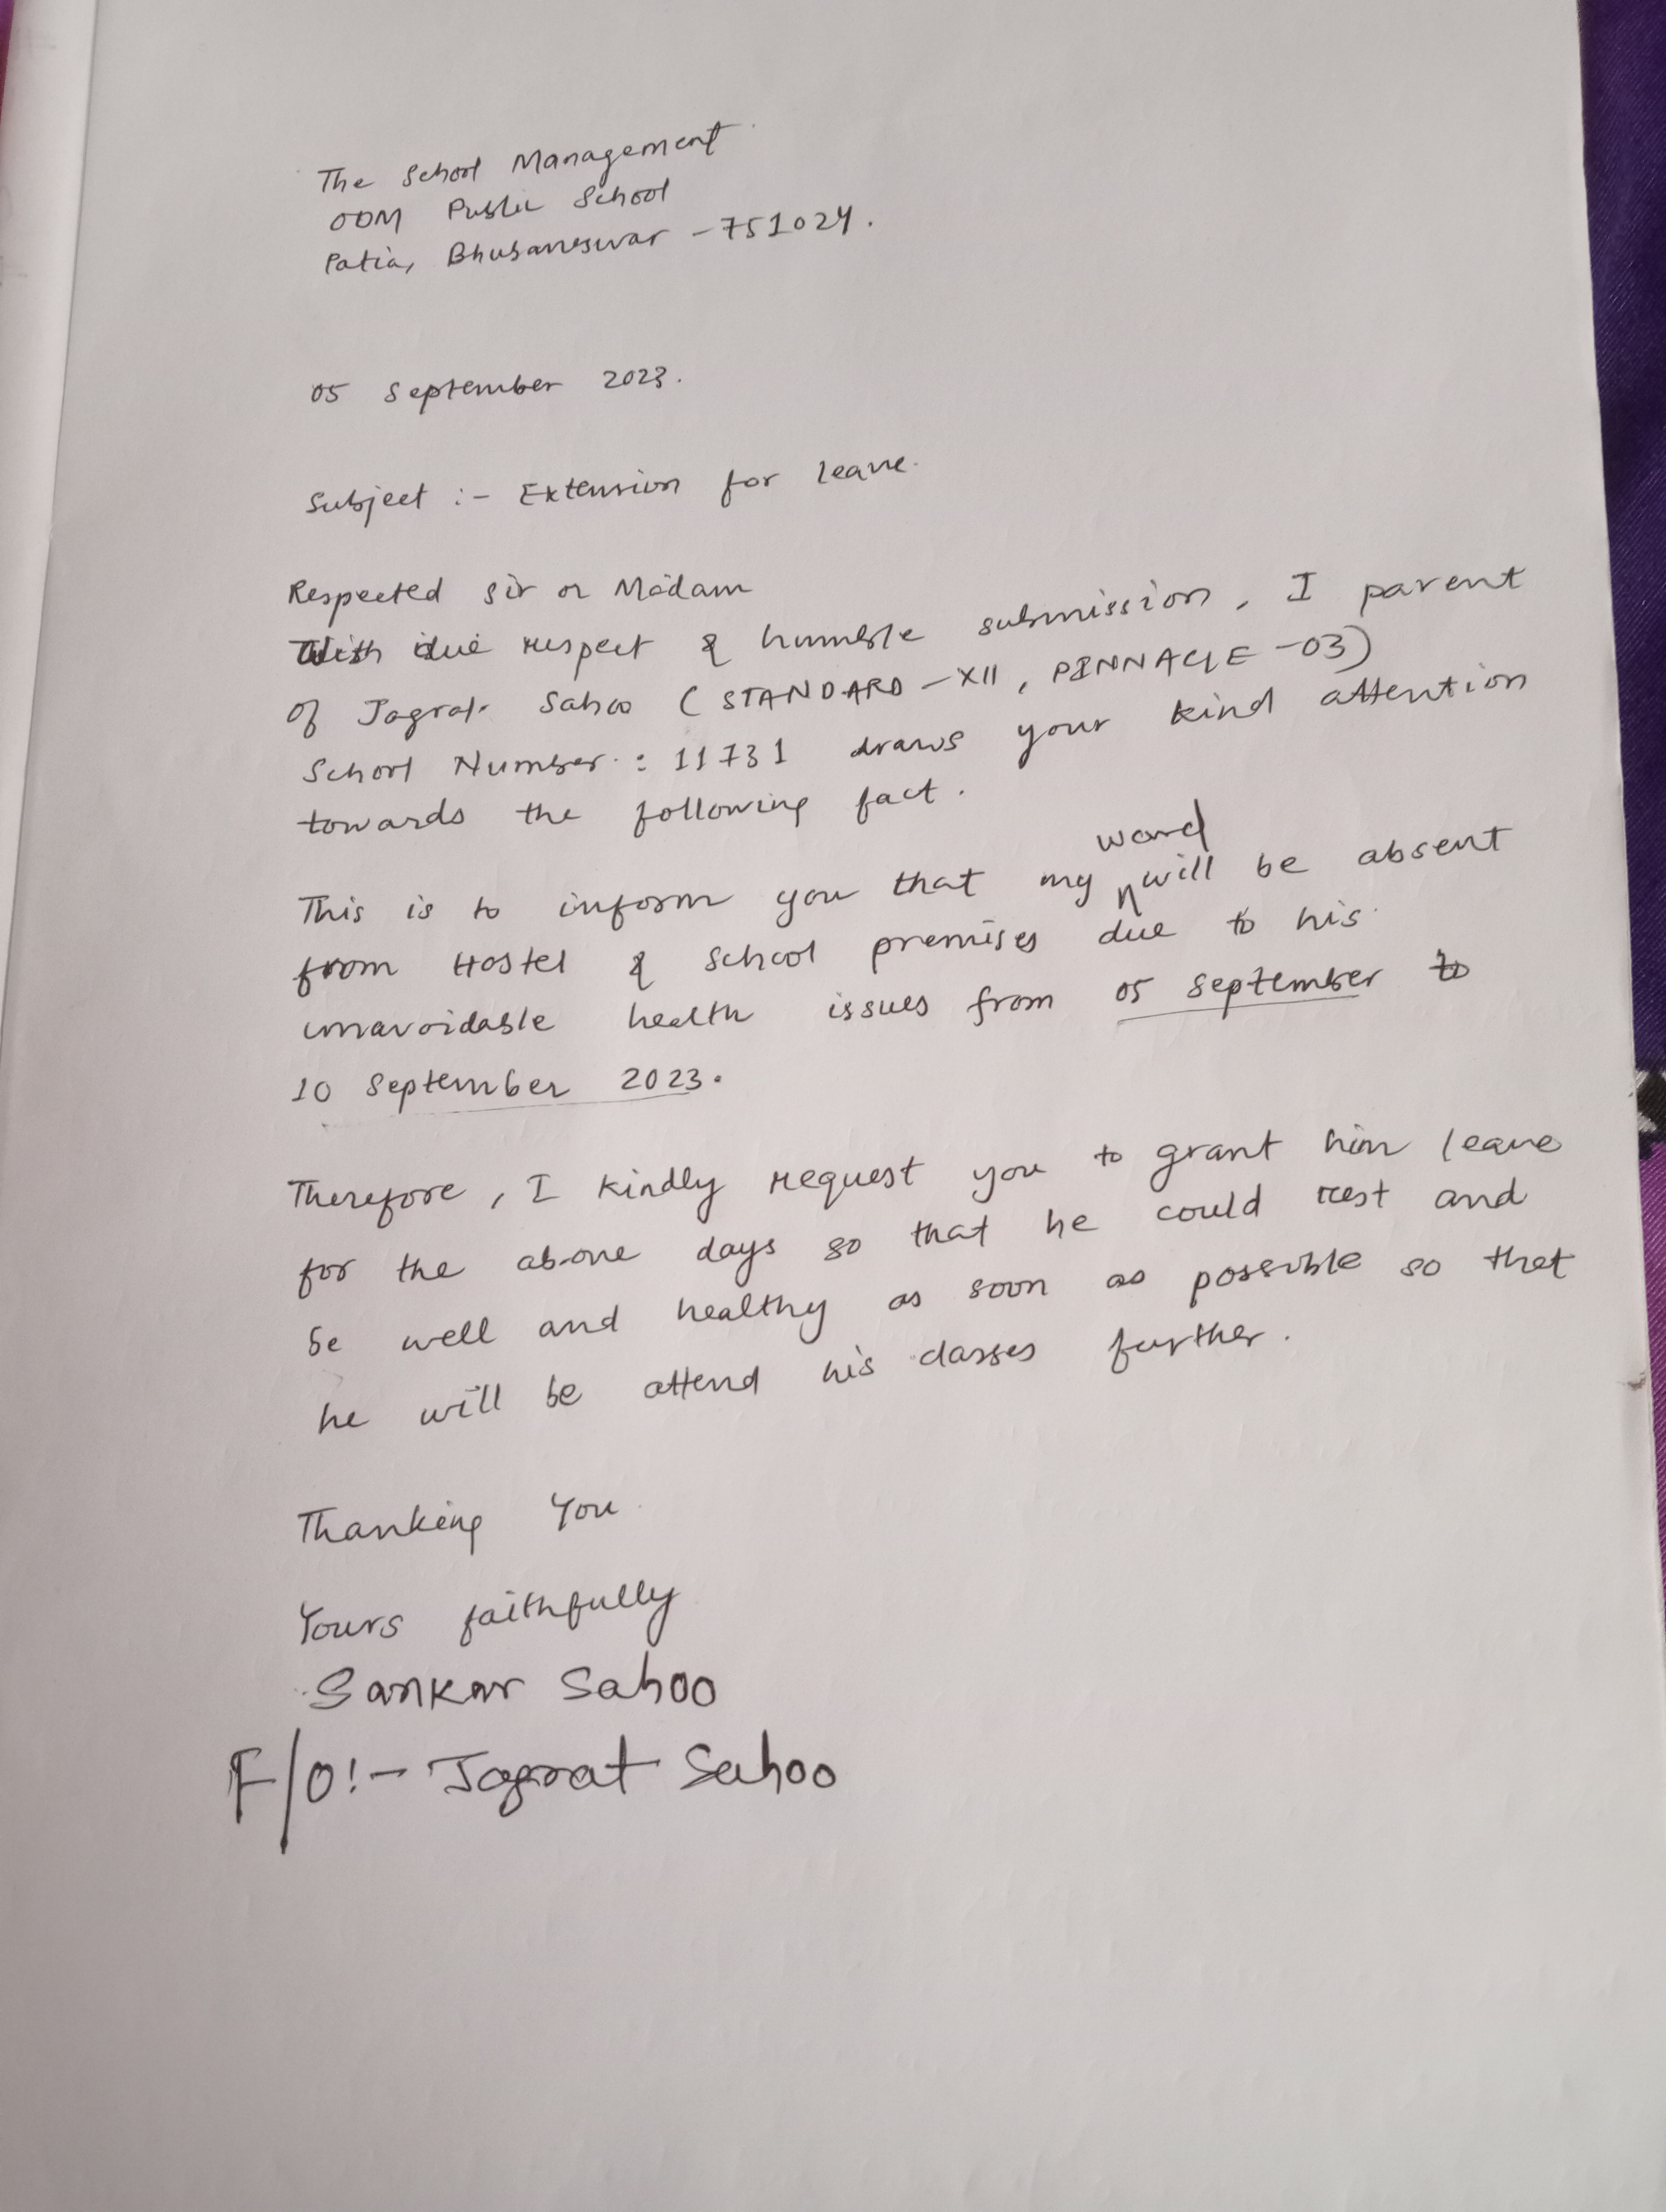 The School Management
ODM Public School
Patia, Bhubaneswar - 751024.
05 September 2023.
Subject :- Extension for leave.
Respected Sir or Madam
With due respect & humble submission, I parent
of Jagrat Sahoo (STANDARD - XII, PINNACLE - 03)
School Number : 11731 draws your kind attention
towards the following fact.
This is to inform you that my ward will be absent
from Hostel & School premises due to his
unavoidable health issues from 05 September to
10 September 2023.
Therefore, I kindly request you to grant him leave
for the above days so that he could rest and
be well and healthy as soon as possible so that
he will be attend his classes further.
Thanking You
Yours faithfully
Sankar Sahoo
F/O:- Jagrat Sahoo